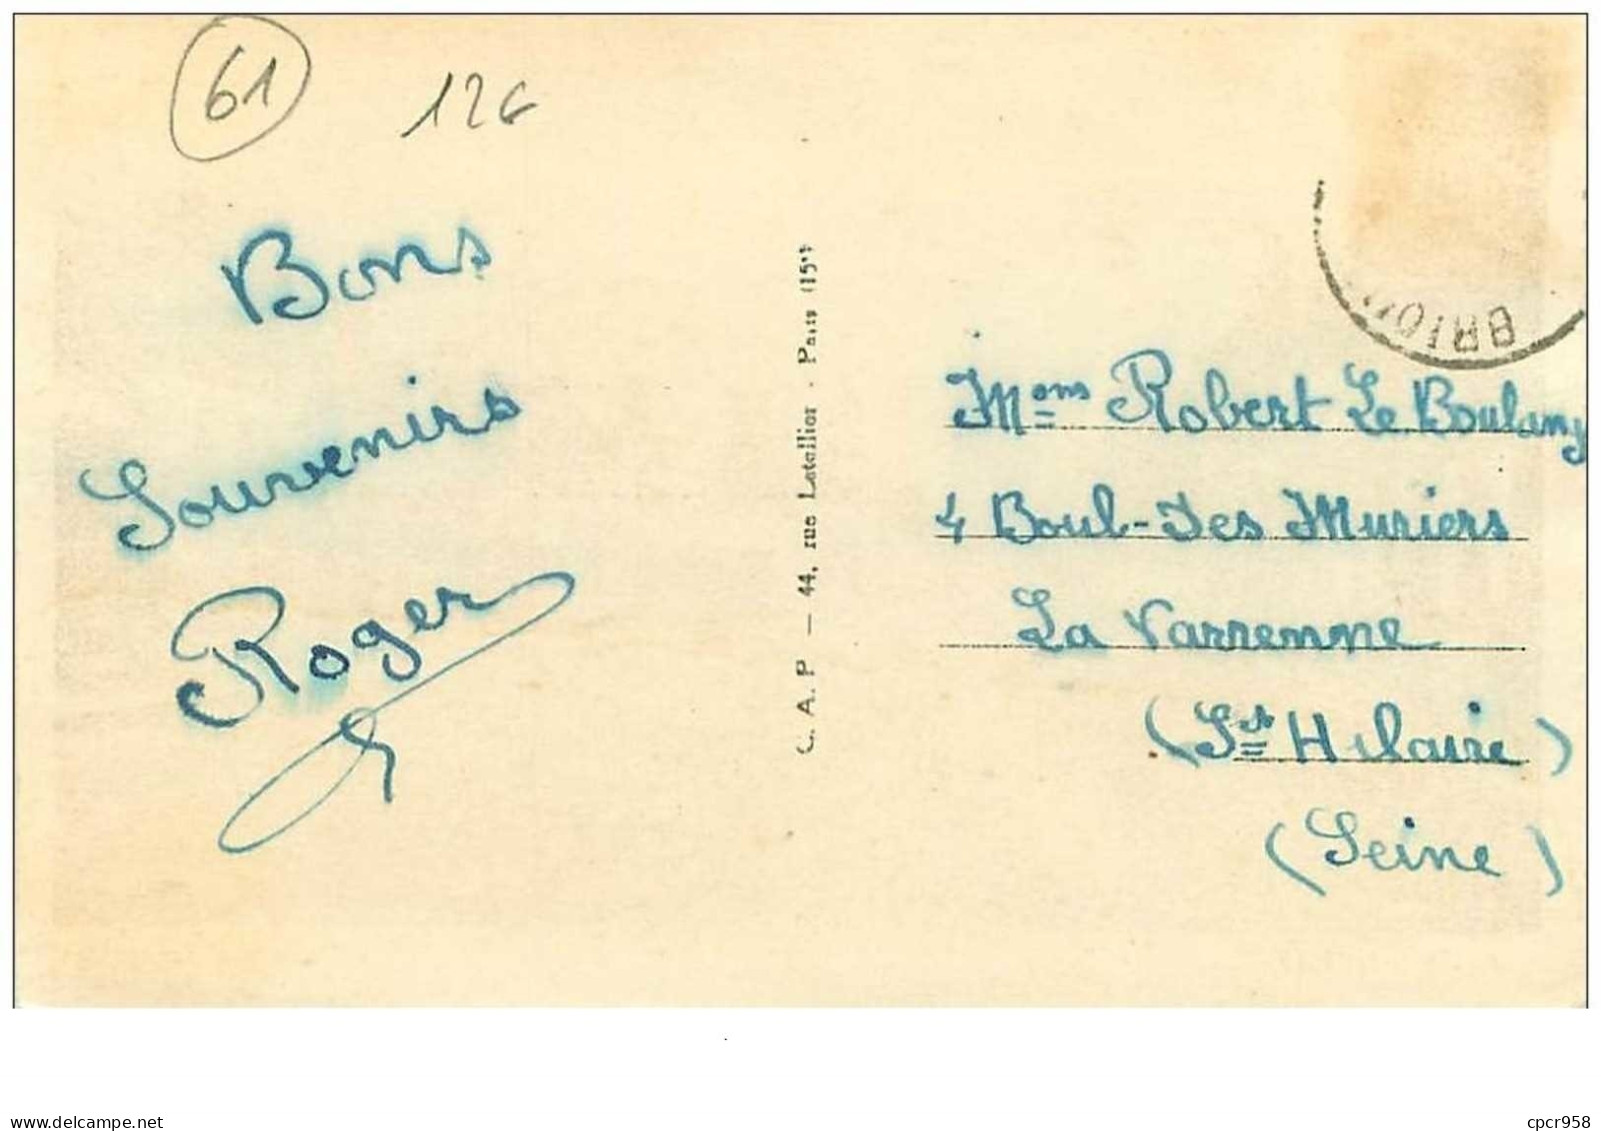 61
126
Bons
Souvenirs
Roger
C. A. P — 44, rue Letellier - Paris (15e)
BRIOU
Mons Robert Le Boulang
4 Boul-Des Muriers
La Varrenne
(St Hilaire)
(Seine)
www.delcampe.net
cpcr958